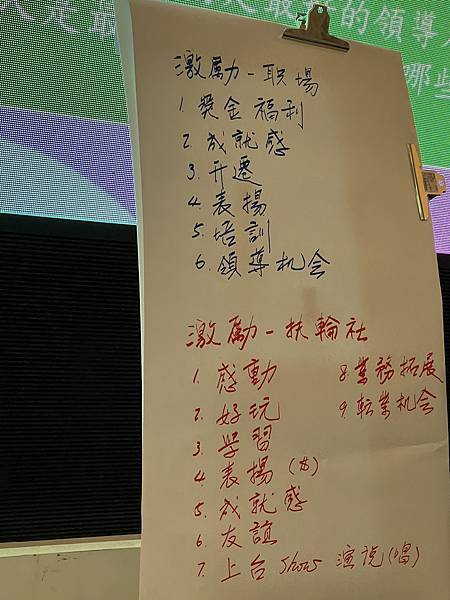 是最 的領導
哪些
激勵-职场
1 獎金 福利
2. 成就感
3. 升遷
4 表揚
5. 培訓
6. 領導机会
激勵-扶輪社
1. 感動
2. 好玩
3. 学習
4 表揚
5. 成就感
6. 友誼
7. 上台 show 演说(唱)
8 業務拓展
9. 転業机会